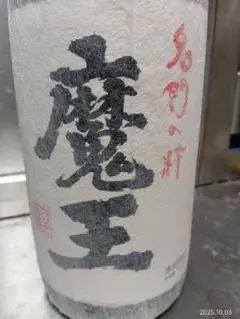 名門の粋
魔王
2025.10.03